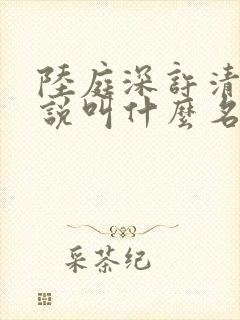 陸庭深許清
說叫什麼名
采茶纪